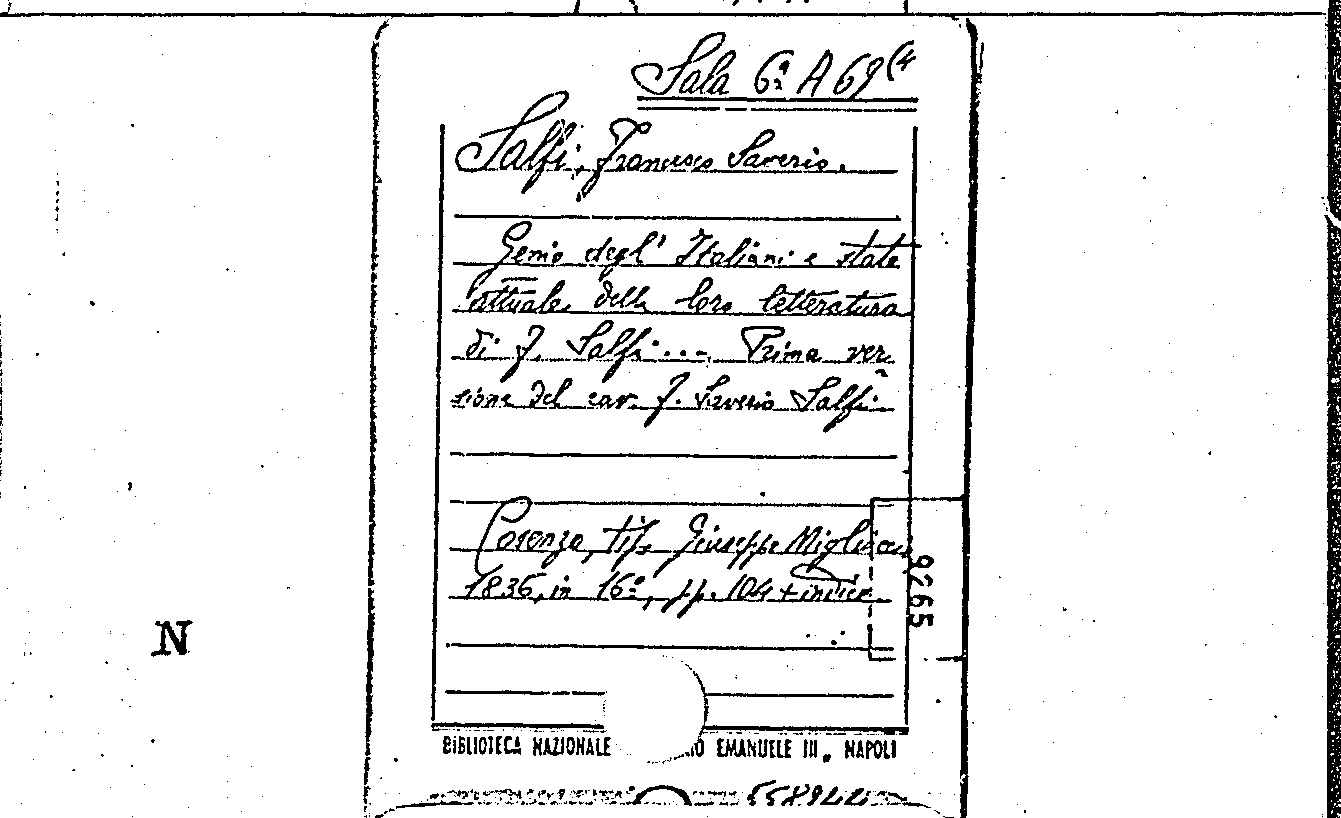 Sala 6ª A 69(4
Salfi, Francesco Saverio.
Genio degl' Italiani e stato
attuale della loro letteratura
di F. Salfi... Prima ver
sione del cav. F. Saverio Salfi
Cosenza, tip. Giuseppe Migliaccio
1836, in 16°, pp. 104 + indice
9265
N
BIBLIOTECA NAZIONALE EMANUELE III, NAPOLI